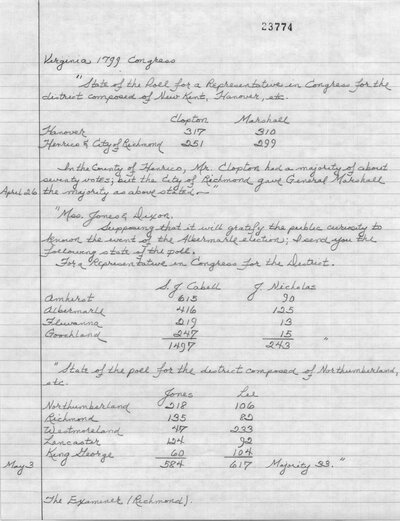 23774
Virginia 1799 Congress
"State of the Poll for a Representative in Congress for the
district composed of New Kent, Hanover, etc.
Clopton Marshall
Hanover 317 310
Henrico & City of Richmond 251 299
In the County of Henrico, Mr. Clopton had a majority of about
seventy votes; but the City of Richmond gave General Marshall
April 26 the majority as above stated.—"
"Mss. Jones & Dixon,
Supposing that it will gratify the public curiosity to
know the event of the Albemarle election; I send you the
following state of the poll.
For a Representative in Congress for the District.
S. J Cabell J Nicholas
Amherst 615 90
Albermarle 416 125
Fluvanna 219 13
Goochland 247 15
1497 243 "
"State of the poll for the district composed of Northumberland,
etc.
Jones Lee
Northumberland 218 106
Richmond 135 82
Westmoreland 47 233
Lancaster 124 92
King George 60 104
May 3 584 617 Majority 33."
The Examiner (Richmond).